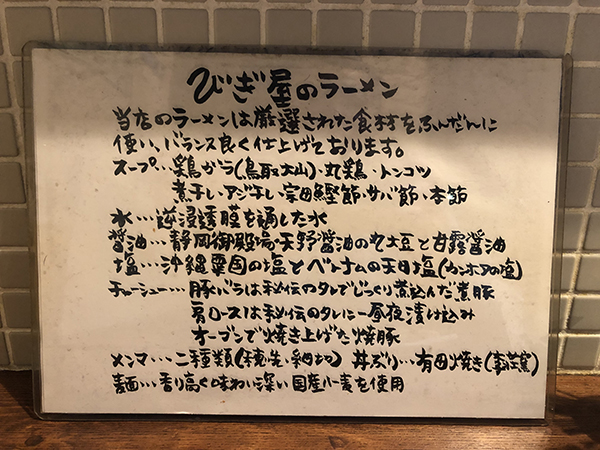 びぎ屋のラーメン
当店のラーメンは厳選された食材をふんだんに
使い、バランス良く仕上げております。
スープ…鶏がら(鳥取大山)・丸鶏・トンコツ
煮干し・アジ干し・宗田鰹節・サバ節・本節
水…逆浸透膜を通した水
醤油…静岡御殿場天野醤油の丸大豆と甘露醤油
塩…沖縄粟国の塩とベトナムの天日塩(カンホアの塩)
チャーシュー…豚バラは秘伝のタレでじっくり煮込んだ煮豚
肩ロースは秘伝のタレに一昼夜漬け込み
オーブンで焼き上げた焼豚
メンマ…二種類(穂先・細切) 丼ぶり…有田焼き
麺…香り高く味わい深い国産小麦を使用